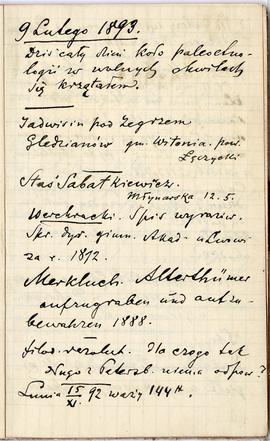 9 Lutego 1893.
Dziś cały dzień koło paleoetno-
logii w wolnych chwilach
się krzątałem.
Jadwisin pod Zegrzem
Gledzianów gm. Witonia. pow.
Łęczycki
Staś Sabatkiewicz.
Młynarska 12.5.
Werchracki. Spis wyrazów.
Spr. dyr. gimn. Akad. w Lwowie
za r. 1872.
Merkbuch. Alterthümer
aufzugraben und aufzu-
bewahren 1888.
filod. rezolut. Dla czego tak
długo z Petersb. niema odpow?
Lunia 15/XI. 92 waży 144